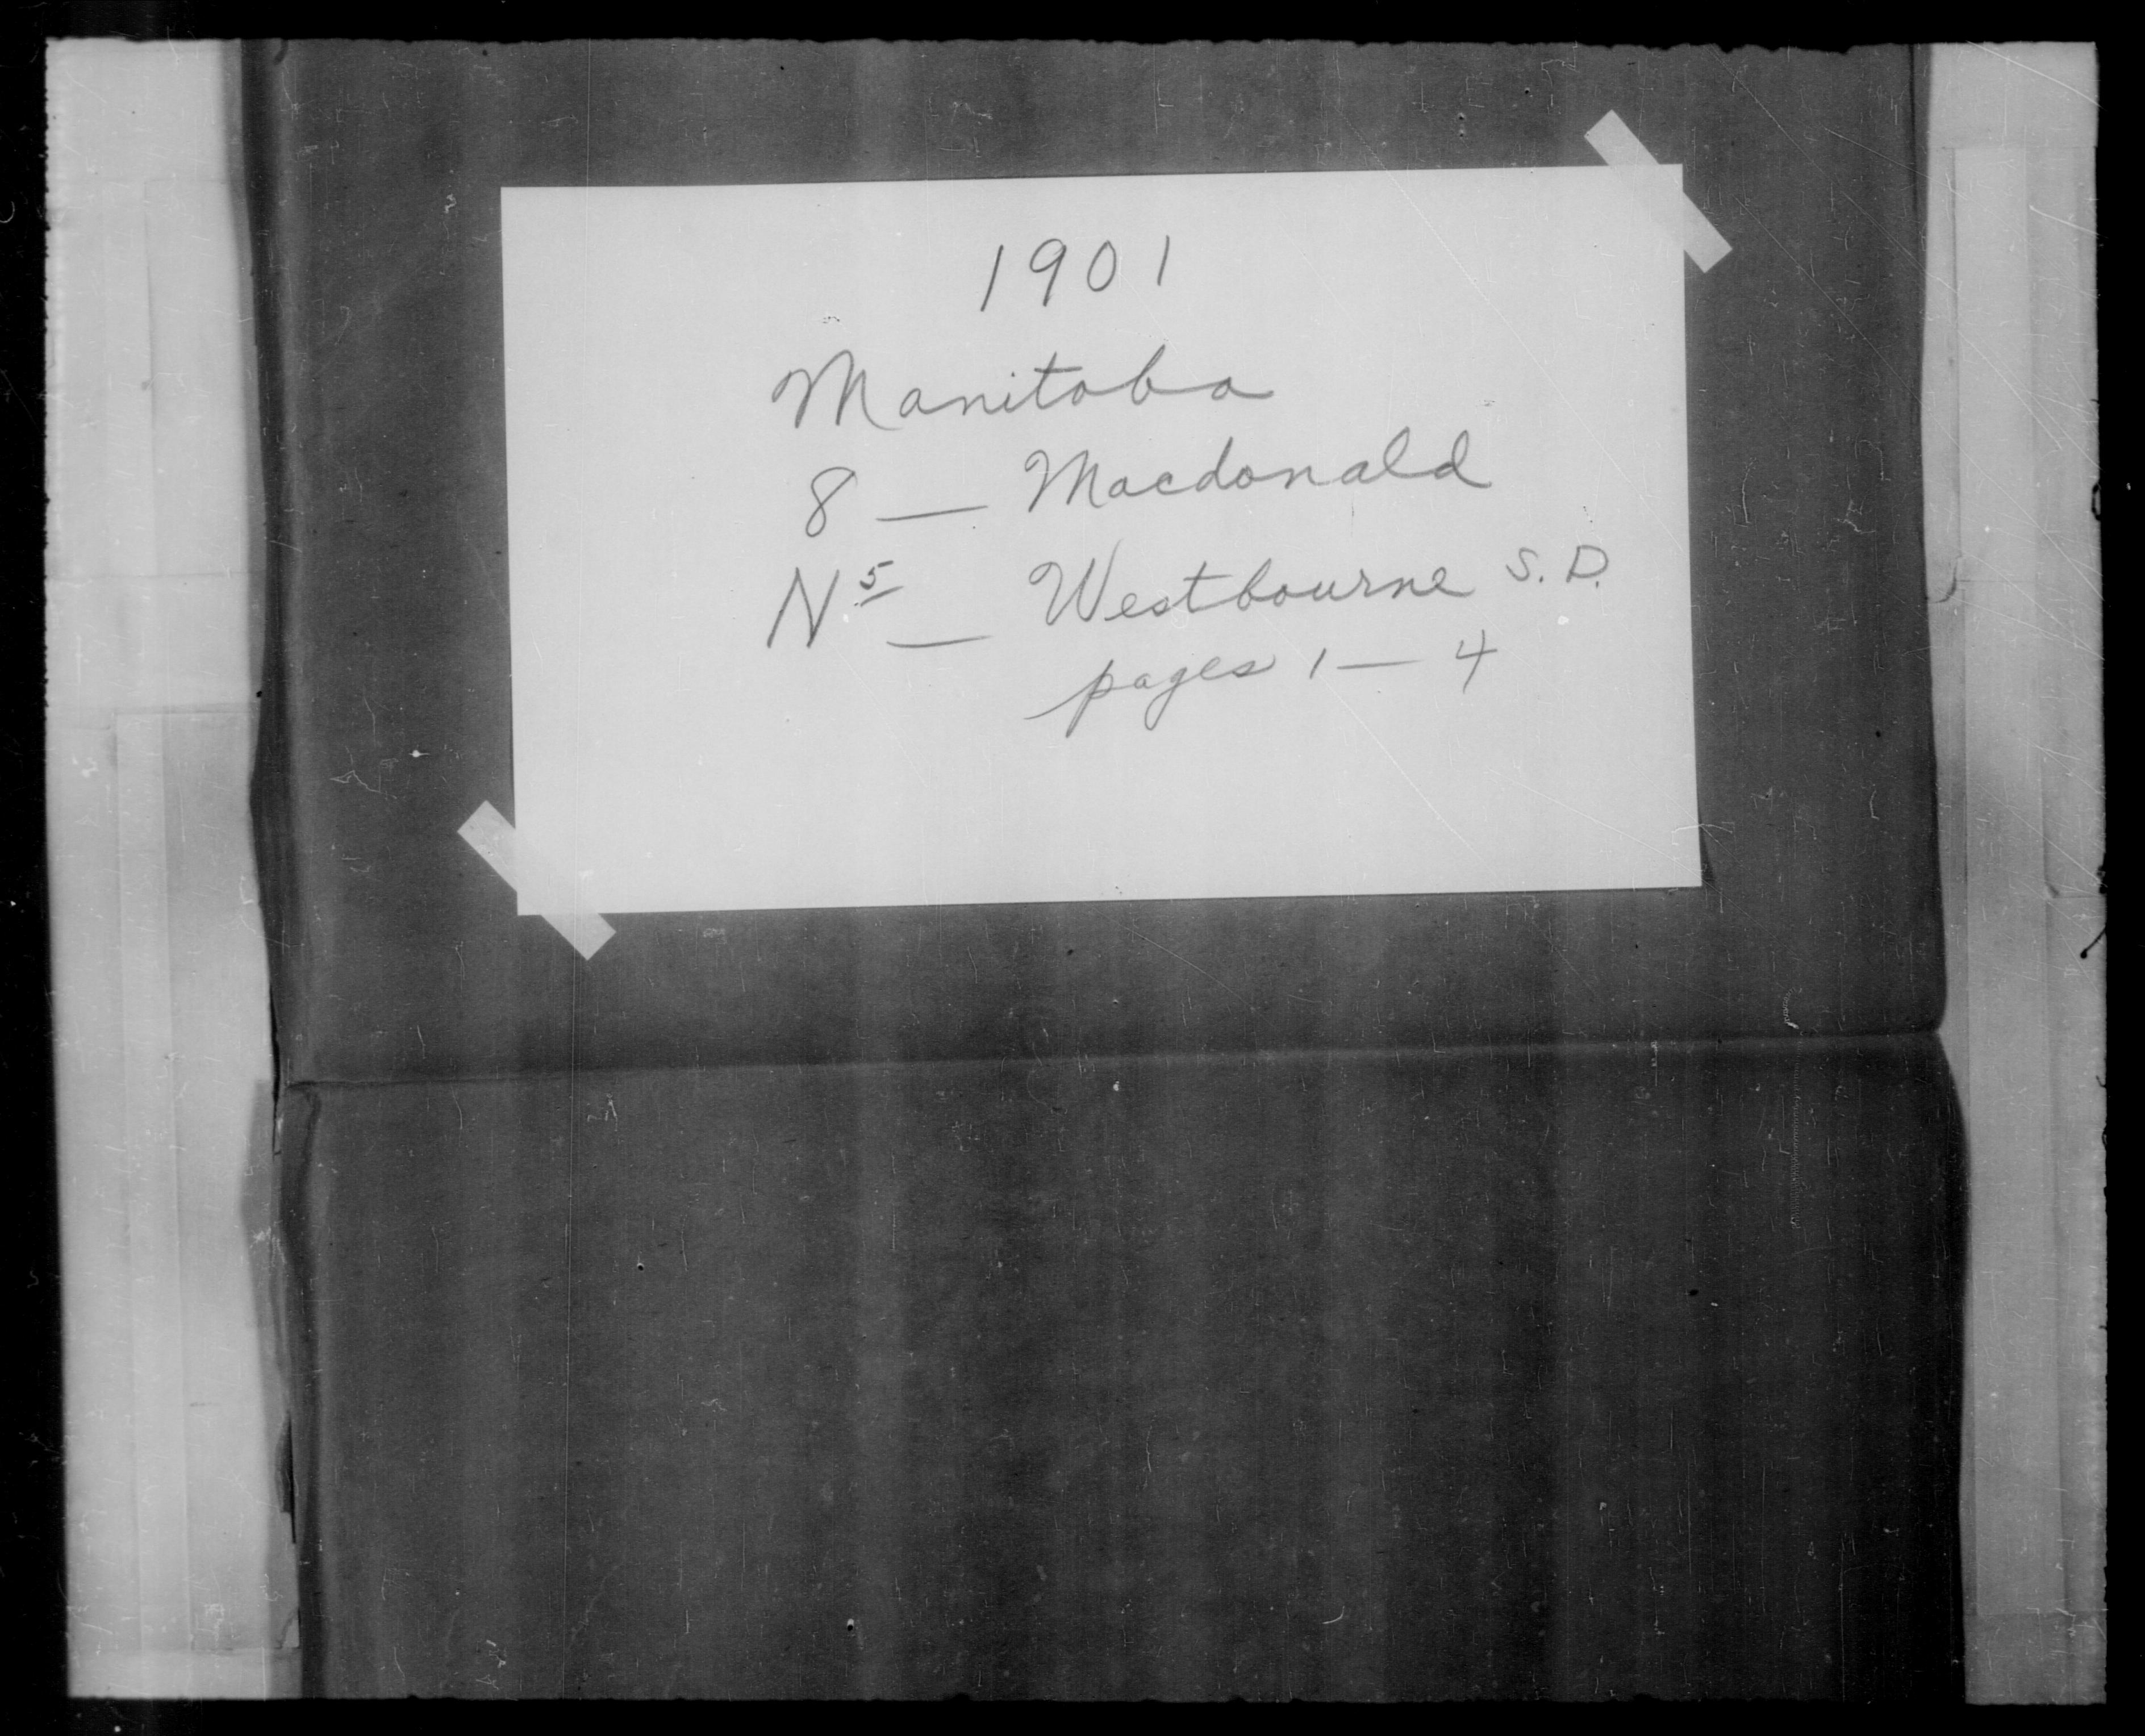 1901
Manitoba
8 — Macdonald
N 5 — Westbourne S. D.
pages 1 — 4